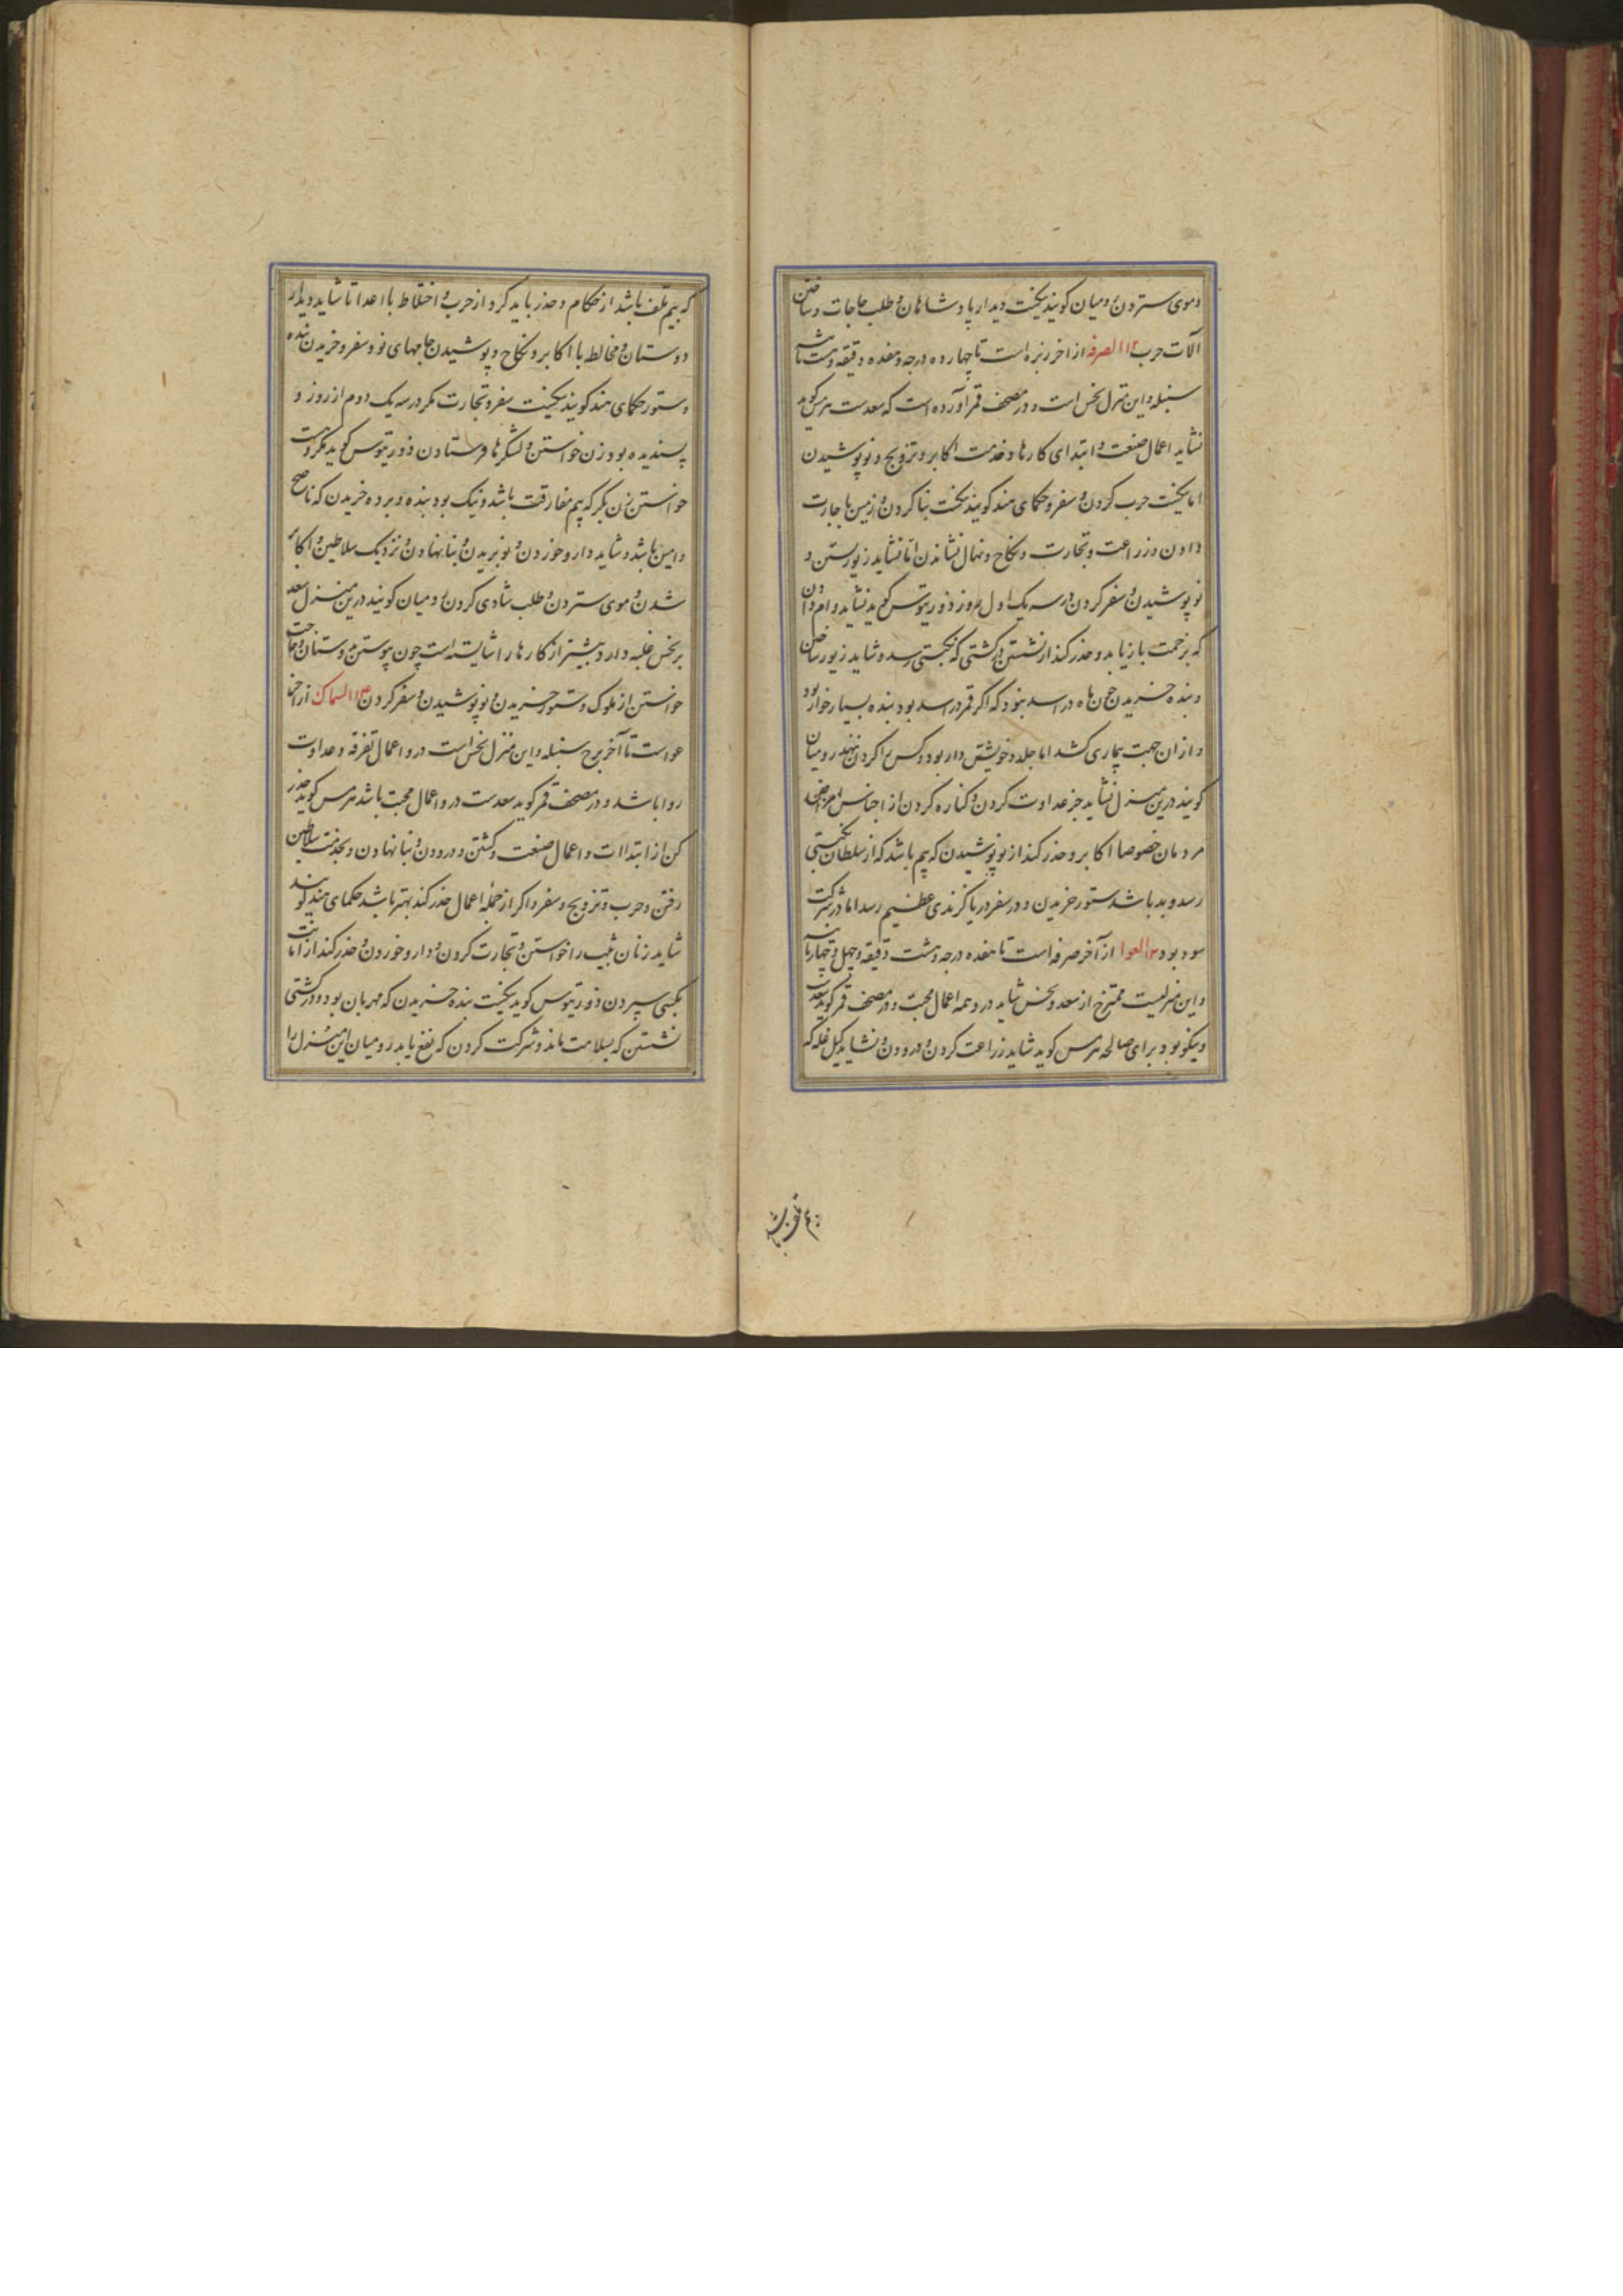 و موی ستردن رومیان کویند نیکست دیدار پادشاهان و طلب حاجات و ساختن
آلات حرب ۱۲ الصرفه از آخر زبره است تا چهارده درجه و هفده دقیقه و بست ثانیه
سنبله و این منزل نحس است و در مصحف قمر آورده است که سعدست هرمس کوید
نشاید اعمال صنعت و ابتدای کارها و خدمت اکابر و تزویج و نو پوشیدن
اما نیکست حرب کردن و سفر و حکمای هند کویند نیکست بنا کردن و زمین باجارت
دادن و زراعت و تجارت و نکاح و نهال نشاندن اما نشاید زیور بستن و
نو پوشیدن و سفر کردن در سه یک اول روز ذورثیوس کوید نشاید وام دادن
که بزحمت بازیابد و حذر کند از نشستن در کشتی که نکبتی رسد و شاید زیور ساختن
و بنده خریدن چون ماه در اسد نبود که اکر قمر در اسد بود بنده بسیار خوار بود
و از ان جهت بیماری کشد اما جلد و خویشتن دار بود و کس را کردن ننهد رومیان
کویند درین منزل نشاید جز عداوت کردن و کناره کردن از اجناس
مردمان خصوصا اکابر و حذر کند از نو پوشیدن که بیم باشد که از سلطان نکبتی
رسد و بد باشد ستور خریدن و در سفر دریا کزندی عظیم رسد اما در شرکت
سود بود ۱۳ العوا از آخر صرفه است تا هفده درجه و هشت دقیقه و چهل و چهار ثانیه
و این منزلیست ممتزج از سعد و نحس شاید درو همه اعمال محبت و در مصحف قمر کوید سعدست
و نیکو بود برای مصالحه هرمس کوید شاید زراعت کردن و درودن و نشاید کیل غله که
که بیم تلف باشد از حکام و حذر باید کرد از حرب و اختلاط با اعدا تا شاید دیدار
دوستان و مخالطه با اکابر و نکاح و پوشیدن جامهای نو و سفر و خریدن بنده
و ستور حکمای هند کویند نیکست سفر و تجارت مکر در سه یک دوم از روز و
پسندیده بود زن خواستن و لشکرها فرستادن ذورثیوس کوید مکروهست
خواستن زن بکر که بیم مفارقت باشد و نیک بود بنده و برده خریدن که ناصح
و امین باشد و شاید دارو خوردن و نو بریدن و بنا نهادن و نزدیک سلاطین و اکابر
شدن و موی ستردن و طلب شادی کردن رومیان کویند درین منزل سعد
بر نحس غلبه دارد و بیشتر از کارها را شایسته است چون پیوستن دوستان و حاجت
خواستن از ملوک و ستور خریدن و نو پوشیدن و سفر کردن ۱۴ السماک از آخر
عواست تا آخر برج سنبله و این منزل نحس است درو اعمال تفرقه و عداوت
روا باشد و در مصحف قمر کوید سعدست درو اعمال محبت باشد هرمس کوید حذر
کن از ابتداات و اعمال صنعت و کشتن و درودن و بنا نهادن و بخدمت سلاطین
رفتن و حرب و تزویج و سفر و اکر از جمله اعمال حذر کند بهتر باشد حکمای هند کویند
شاید زنان ثیب را خواستن و تجارت کردن و دارو خوردن و حذر کند از امانت
بکسی سپردن ذورثیوس کوید نیکست بنده خریدن که مهربان بود و در کشتی
نشستن که بسلامت ماند و شرکت کردن که نفع یابد رومیان این منزل را